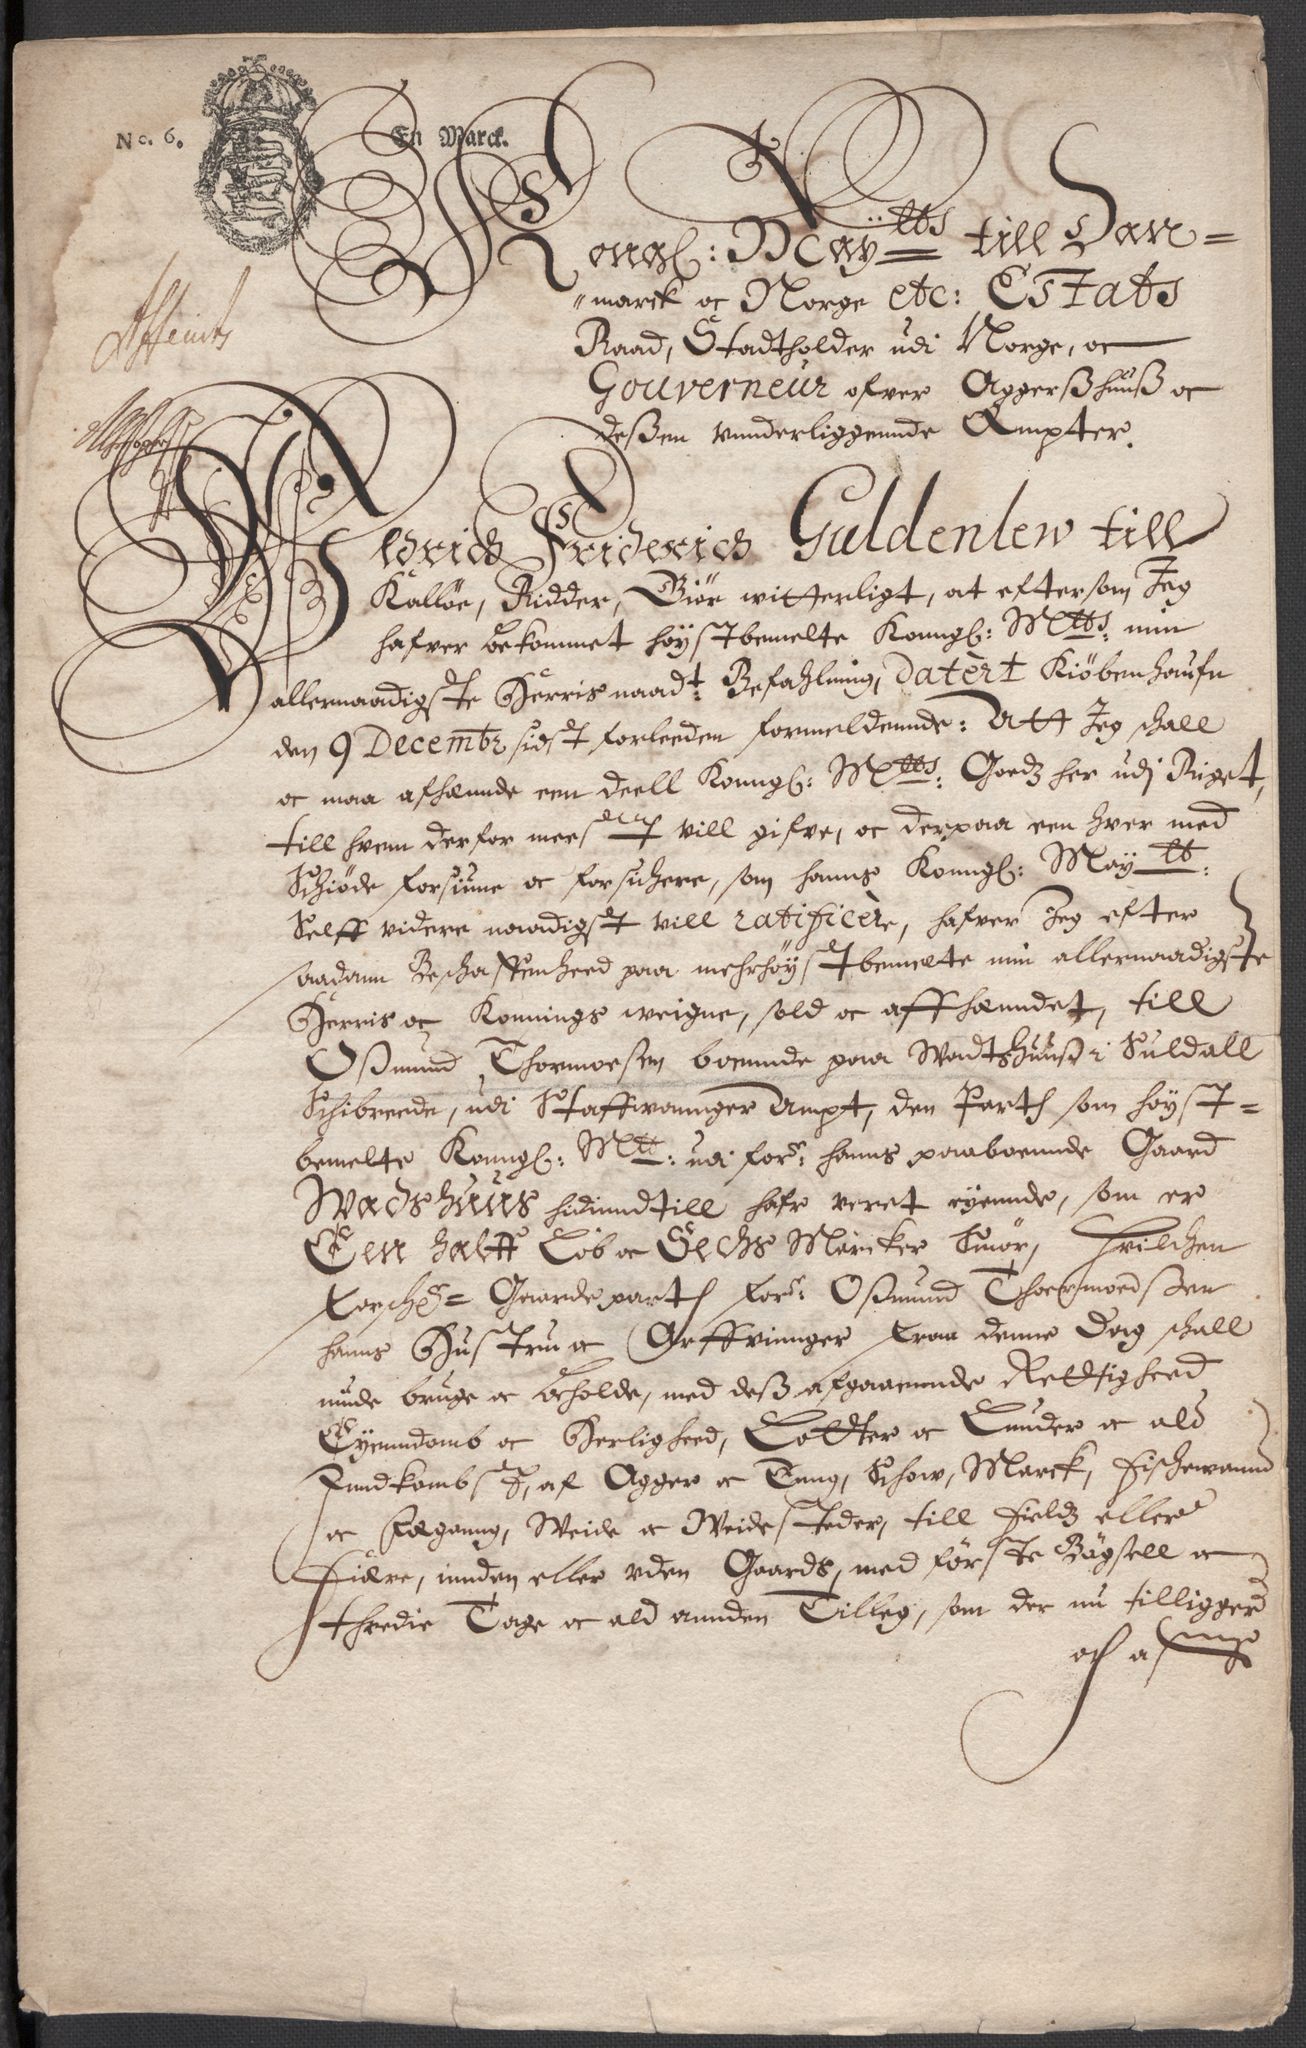 No. 6. En Marck.
Kongl: Mayttes till Dan=
"marck oc Norge etc: Estats
Raad, Stadtholder udi Norge, oc
Gouverneur ofver Aggerßhuuß oc
deßen vunderliggende Ampter.
Wldrich Friderich Guldenlew till
Kalløe, Ridder, Giør witterligt, at eftersom Jeg
hafver bekommet høystbemelte Konngl: Mtts: min
allernaadigste Herris naadt: Befahlning, datert Kiøbenhaufn
den 9 Decembr sidst forleeden formeldennde: Att Jeg schall
oc maa afhænnde een deell Konngl: Mtts: Goedz her udj Riget,
till hvem derfor meest vill gifve, oc derpaa een hver med
Schiøde forsiune oc forsichere, som hanns Konngl: Maytt:
Selff videre naadigst vill ratificere, hafver Jeg efter
saadann Beschaffenheed paa mehrhøystbemelte min allernaadigste
Herris oc Konnings weigne, sold oc affhænndet, till
Oßmund Thormoeßen boennde paa Wadtzhuuß i Suldall
Schibreede, udi Staffwannger Ampt, den Partt som høyst=
bemelte Konngl: Mtt: udi forne: hanns paaboennde Gaard
Wadshuus hidinndtill hafr veret eyennde, som er
Een halff Løb oc Sechs Marcker Smør, Hvilchen
forschrne= Gaardepartt forne: Oßmund Thoermoedßen
hanns Hustru oc Arffvinnger fraa denne Dag schall
niude bruge oc beholde, med deß afgaaennde Rettigheed
Eyenndomb oc Herligheed, Lotter oc Lunder oc ald
Jndkombst, af Agger oc Enng, Schow, Marck, Fischevannd
oc Fægang, Weide oc Weidesteder, till Fieldz eller
Fiære, innden eller uden Gaards, med første Bøgsell oc
thredie Tage oc ald annden Tilleg, som der nu tilligger
och af